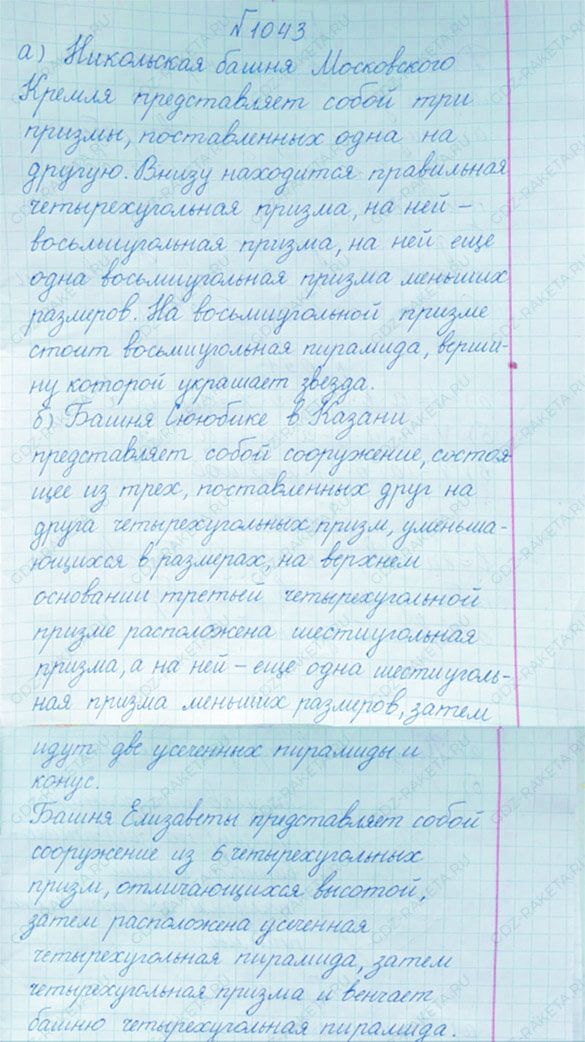 №1043
а) Никольская башня Московского
Кремля представляет собой три
призмы, поставленных одна на
другую. Внизу находится правильная
четырехугольная призма, на ней –
восьмиугольная призма, на ней еще
одна восьмиугольная призма меньших
размеров. На восьмиугольной призме
стоит восьмиугольная пирамида, верши-
ну которой украшает звезда.
б) Башня Сююбике в Казани
представляет собой сооружение, состоя
щее из трех, поставленных друг на
друга четырехугольных призм, уменьша-
ющихся в размерах, на верхнем
основании третьей четырехугольной
призме расположена шестиугольная
призма, а на ней – еще одна шестиуголь-
ная призма меньших размеров, затем
идут две усеченных пирамиды и
конус.
Башня Елизаветы представляет собой
сооружение из 6 четырехугольных
призм, отличающихся высотой,
затем расположена усеченная
четырехугольная пирамида, затем
четырехугольная призма и венчает
башню четырехугольная пирамида.
GDZ-RAKETA.RU